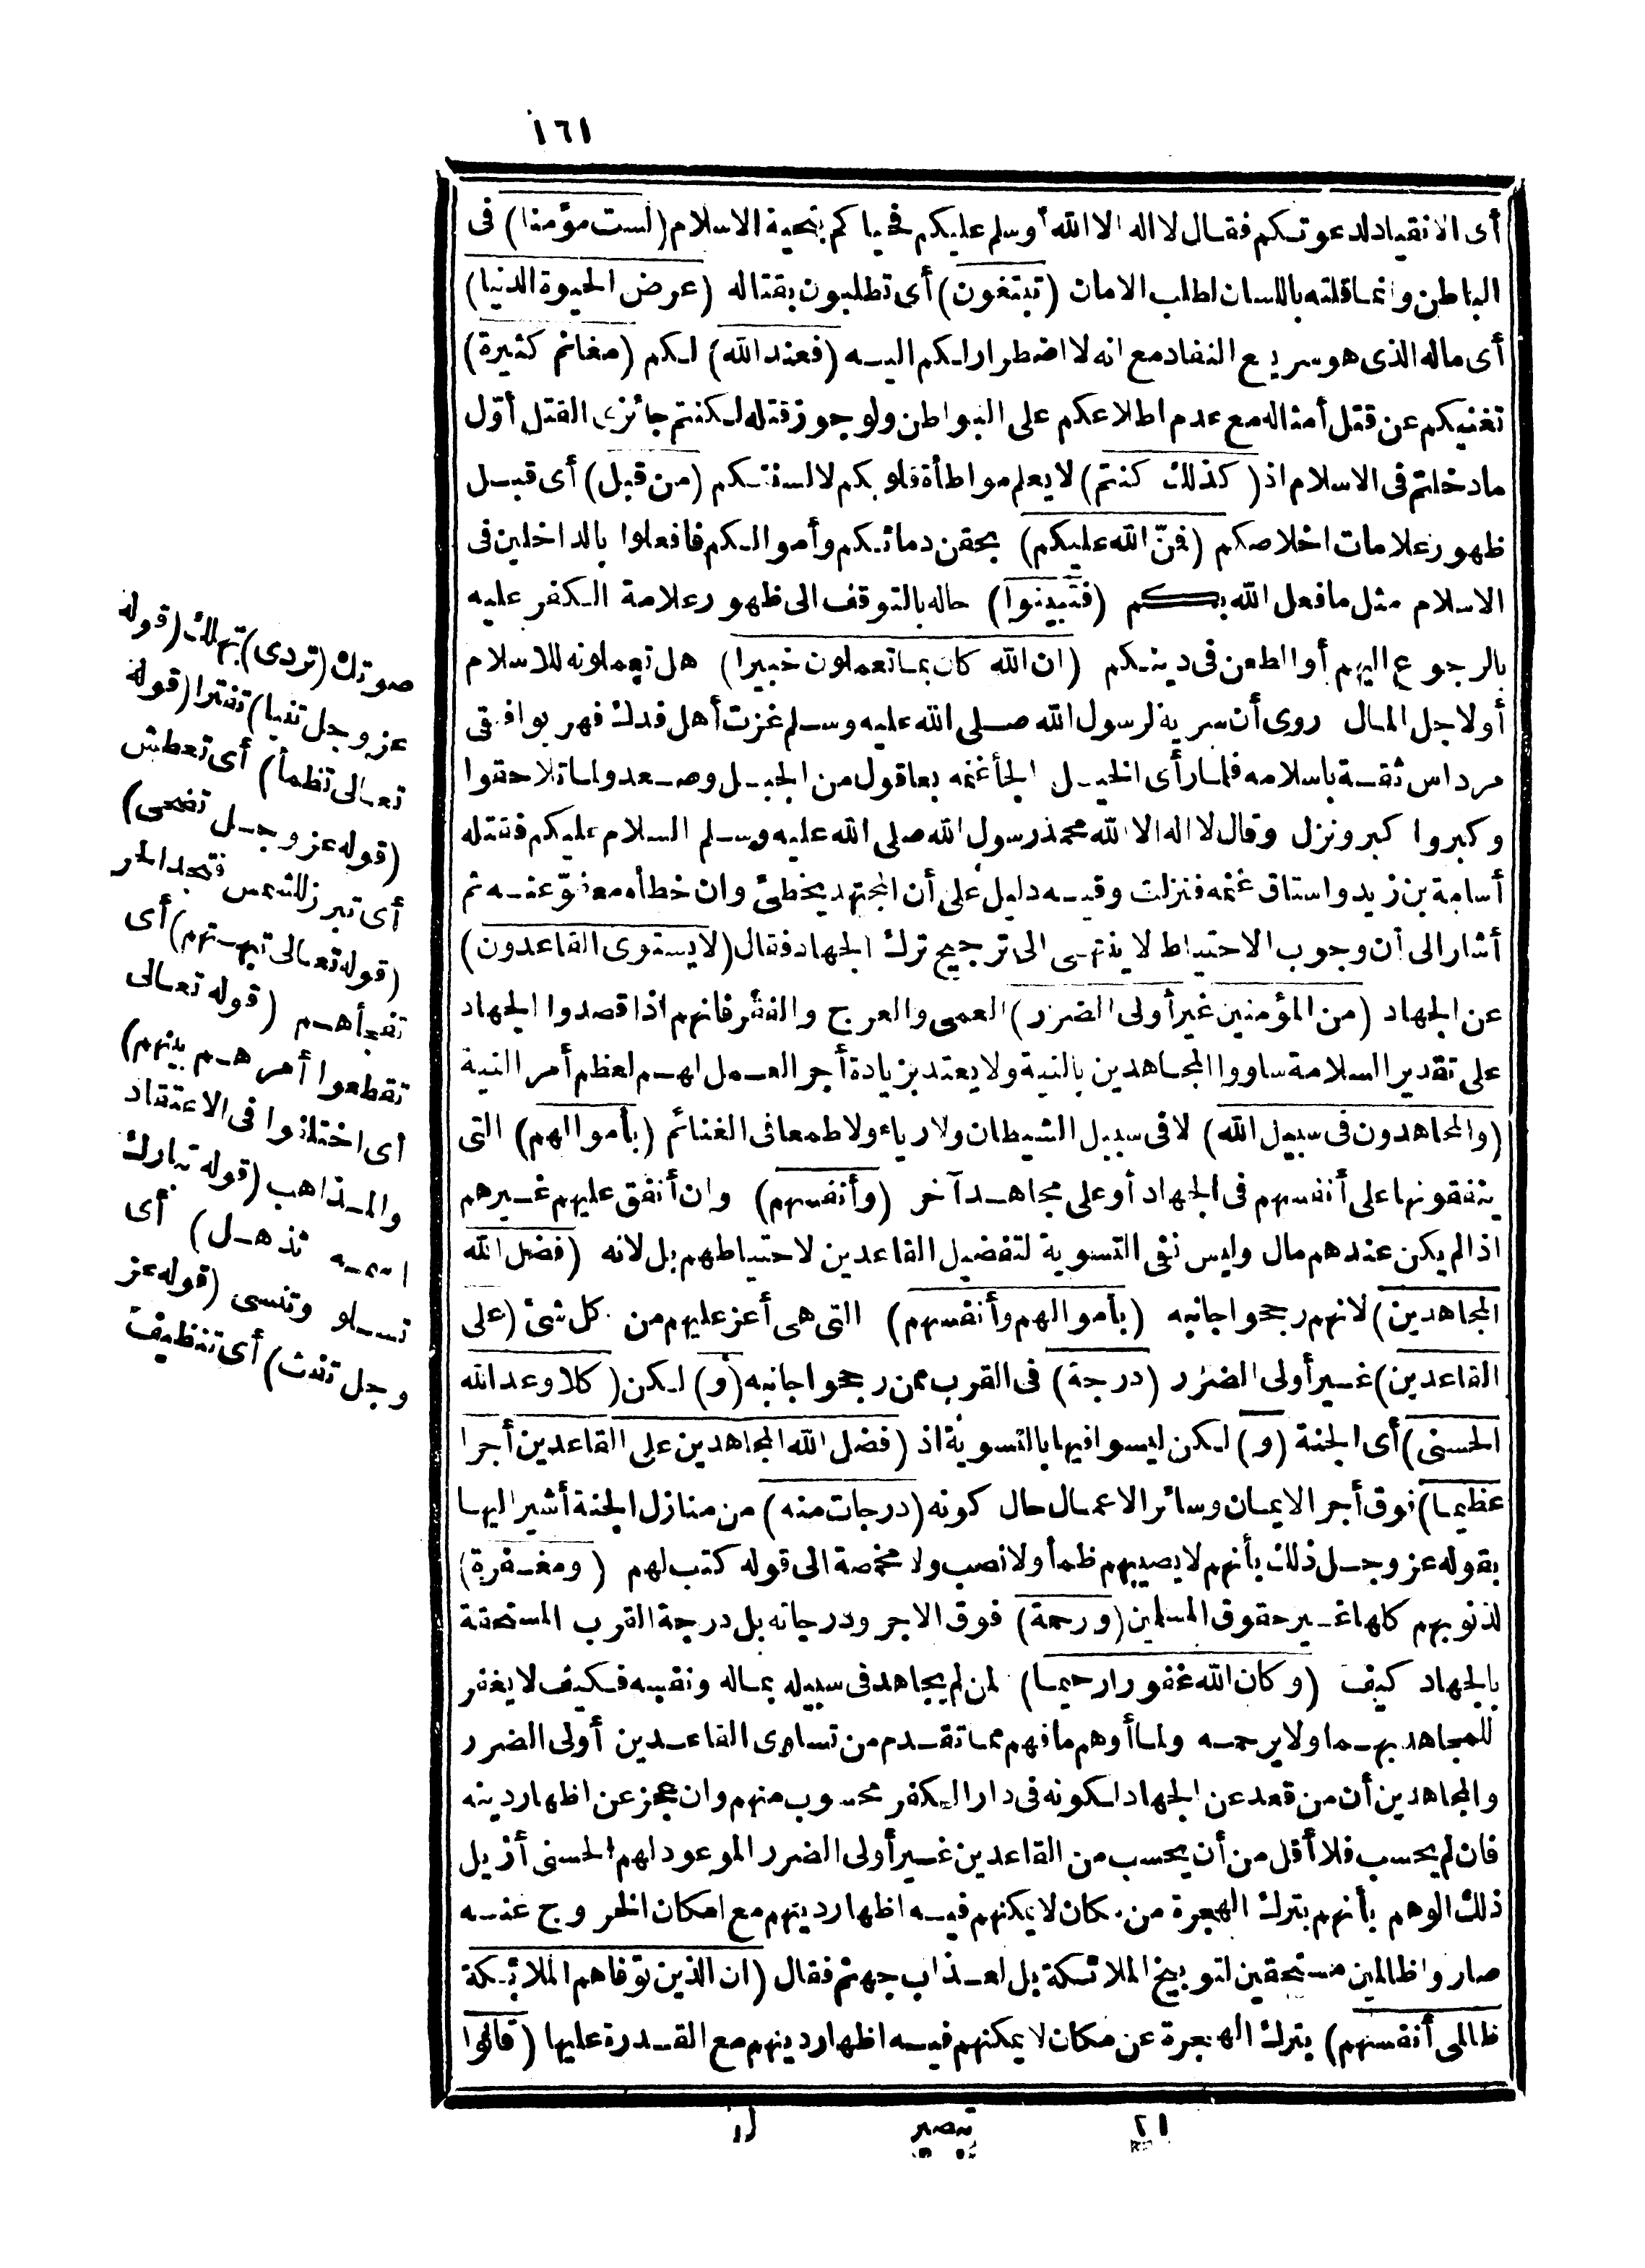 ١٦١
أى الانقياد لدعوتكم فقال لا اله الا الله أوسلم عليكم فحياكم بتحية الاسلام (لست مؤمنا) فى
الباطن وانما قلته باللسان لطلب الامان (تبتغون) أى تطلبون بقتاله (عرض الحيوة الدنيا)
أى ماله الذى هو سريع النفاد مع انه لا اضطرار لكم اليه (فعند الله) لكم (مغانم كثيرة)
تغنيكم عن قتل أمثاله مع عدم اطلاعكم على البواطن ولو جوز قتله لكنتم جائزى القتل أوّل
ما دخلتم فى الاسلام اذ (كذلك كنتم) لا يعلم مواطأة قلوبكم لالسنتكم (من قبل) أى قبل
ظهور علامات اخلاصكم (فمنّ الله عليكم) بحقن دمائكم وأموالكم فافعلوا بالداخلين فى
الاسلام مثل ما فعل الله بكم (فتبينوا) حاله بالتوقف الى ظهور علامة الكفر عليه
بالرجوع اليهم أو الطعن فى دينكم (ان الله كان بما تعملون خبيرا) هل تعملونه للاسلام
أولاجل المال روى أن سرية لرسول الله صلى الله عليه وسلم غزت أهل فدك فهربوا فبقى
مرداس ثقة باسلامه فلما رأى الخيل الجأ غنمه بعاقول من الجبل وصعد ولما تلاحقوا
وكبروا كبر ونزل وقال لا اله الا الله محمد رسول الله صلى الله عليه وسلم السلام عليكم فقتله
أسامة بن زيد واستاق غنمه فنزلت وفيه دليل على أن المجتهد يخطئ وان خطأه معفوّ عنه ثم
أشار الى أن وجوب الاحتياط لا ينتهى الى ترجيح ترك الجهاد فقال (لا يستوى القاعدون)
عن الجهاد (من المؤمنين غير أولى الضرر) العمى والعرج والفقر فانهم اذا قصدوا الجهاد
على تقدير السلامة ساووا المجاهدين بالنية ولا يعتد بزيادة أجر العمل لهم لعظم أمر النية
(والمجاهدون فى سبيل الله) لا فى سبيل الشيطان ولا رياء ولا طمعا فى الغنائم (بأموالهم) التى
ينفقونها على أنفسهم فى الجهاد أو على مجاهد آخر (وأنفسهم) وان أنفق عليهم غيرهم
اذا لم يكن عندهم مال وليس نفى التسوية لتفضيل القاعدين لاحتياطهم بل لانه (فضل الله
المجاهدين) لانهم رجحوا جانبه (بأموالهم وأنفسهم) التى هى أعز عليهم من كل شئ (على
القاعدين) غير أولى الضرر (درجة) فى القرب ممن رجحوا جانبه (و) لكن (كلا وعد الله
الحسنى) أى الجنة (و) لكن ليسوا فيها بالتسوية اذ (فضل الله المجاهدين على القاعدين أجرا
عظيما) فوق أجر الايمان وسائر الاعمال حال كونه (درجات منه) من منازل الجنة أشير اليها
بقوله عز وجل ذلك بأنهم لا يصيبهم ظمأ ولا نصب ولا مخمصة الى قوله كتب لهم (ومغفرة)
لذنوبهم كلها غير حقوق المسلمين (ورحمة) فوق الاجر ودرجاته بل درجة القرب المستحقة
بالجهاد كيف (وكان الله غفورا رحيما) لمن لم يجاهد فى سبيله بماله ونفسه فكيف لا يغفر
للمجاهد بهما ولا يرحمه ولما أوهم ما فهم مما تقدم من تساوى القاعدين أولى الضرر
والمجاهدين أن من قعد عن الجهاد لكونه فى دار الكفر محسوب منهم وان عجز عن اظهار دينه
فان لم يحسب فلا أقل من أن يحسب من القاعدين غير أولى الضرر الموعود لهم الحسنى أزيل
ذلك الوهم بأنهم بترك الهجرة من مكان لا يمكنهم فيه اظهار دينهم مع امكان الخروج عنه
صاروا ظالمين مستحقين لتوبيخ الملائكة بل لعذاب جهنم فقال (ان الذين توفاهم الملائكة
ظالمى أنفسهم) بترك الهجرة عن مكان لا يمكنهم فيه اظهار دينهم مع القدرة عليها (قالوا
صوتك (تردى) تهلك (قوله
عز وجل تنيا) تفترا (قوله
تعالى تظمأ) أى تعطش
(قوله عز وجل تضحى)
أى تبرز للشمس فتجد الحر
(قوله تعالى تبهتهم) أى
تفجأهم (قوله تعالى
تقطعوا أمرهم بينهم)
أى اختلفوا فى الاعتقاد
والمذاهب (قوله تبارك
اسمه تذهل) أى
تسلو وتنسى (قوله عز
وجل تفث) أى تنظيف
٢١ تبصير ل